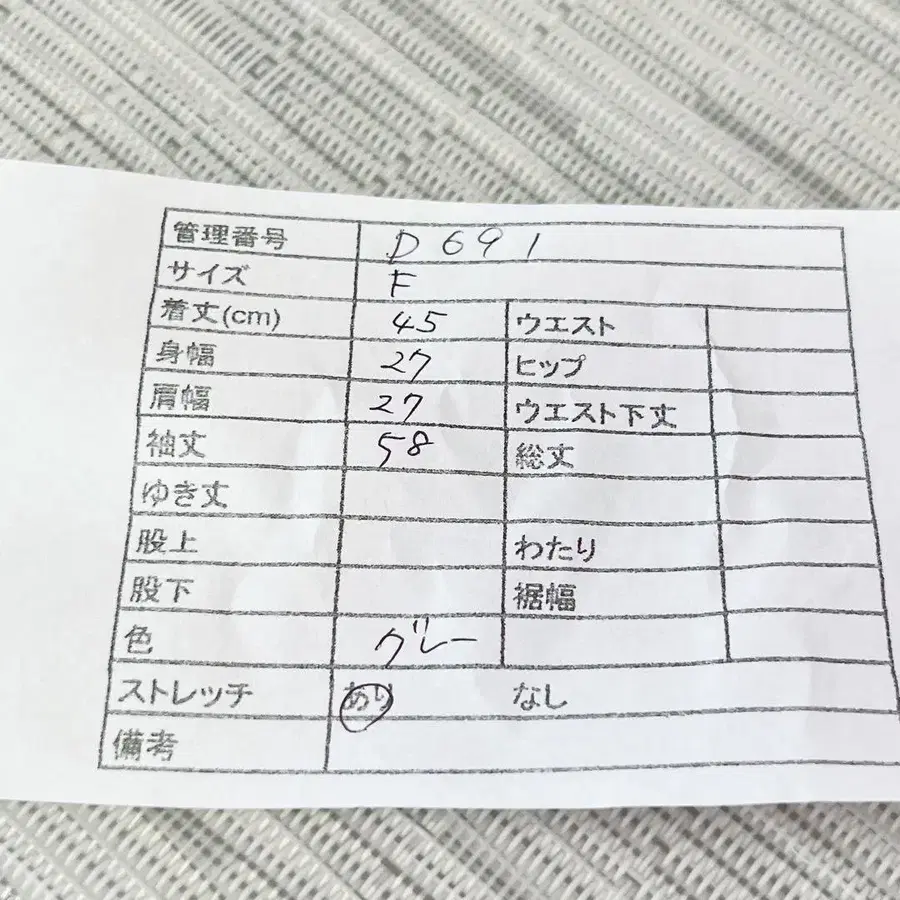 管理番号 D691
サイズ F
着丈(cm) 45 ウエスト
身幅 27 ヒップ
肩幅 27 ウエスト下丈
袖丈 58 総丈
ゆき丈
股上 わたり
股下 裾幅
色 グレー
ストレッチ あり なし
備考